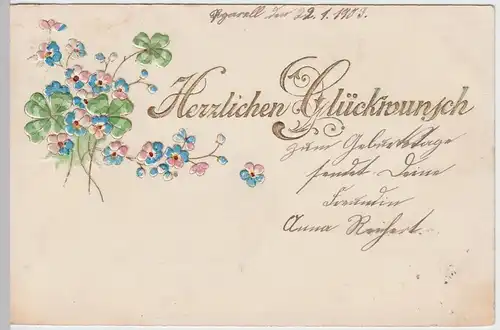 den 22.1.1903.
Herzlichen Glückwunsch
zum Geburtstage
sendet Deine
Freundin
Anna Reichert.